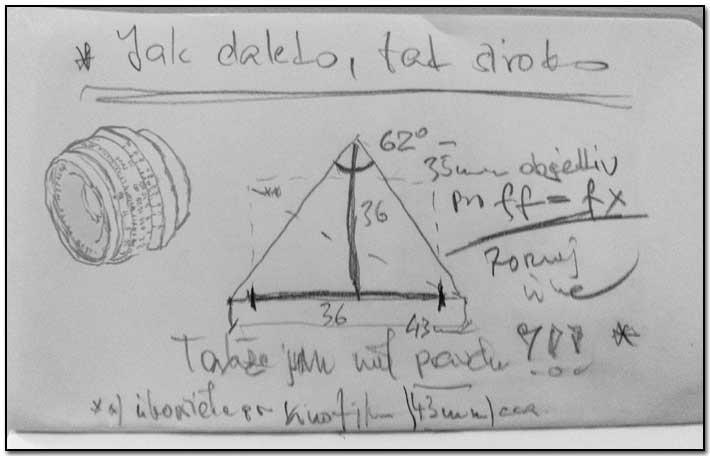 * Jak daleko, tak široko
62°
35mm objektiv
pro ff = fx
zorný
úhel
36
36
43
Takže jsem měl pravdu ??? *
**) úhlopříčka kinofilm (43mm) cca.